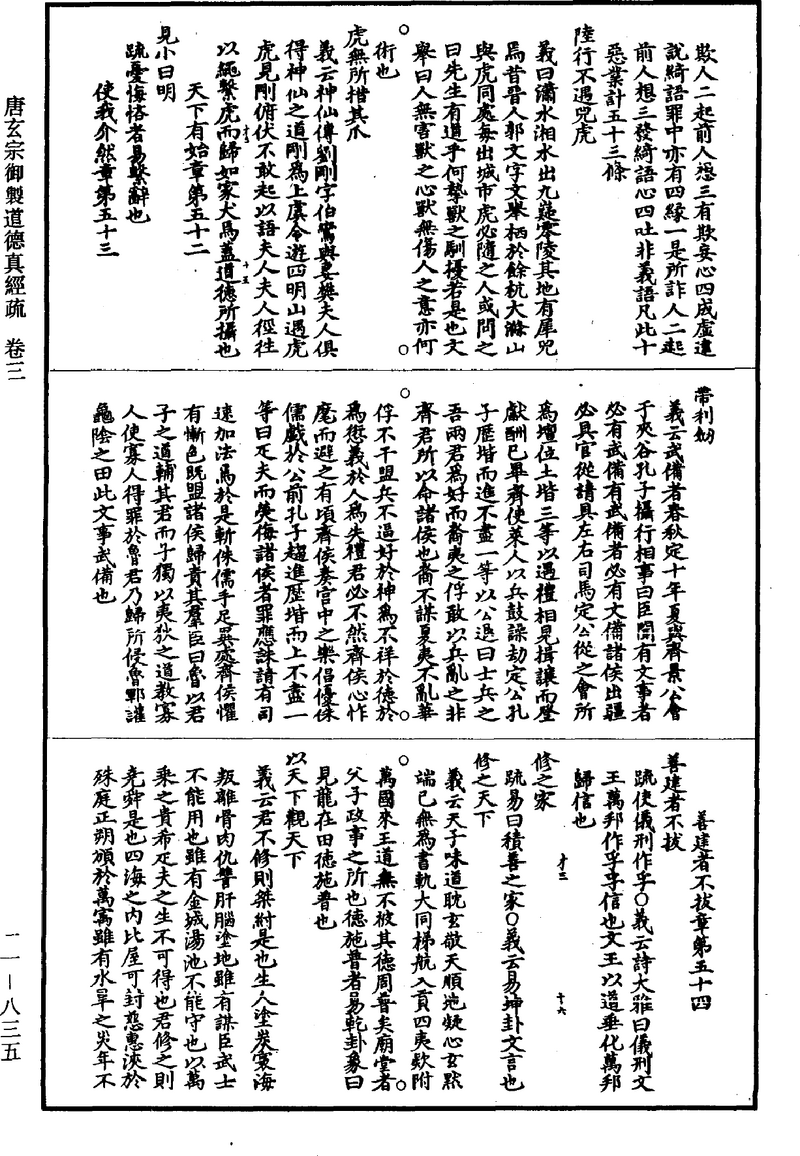 欺人二起前人想三有欺妄心四成虛違
說綺語罪中亦有四緣一是所詐人二起
前人想三發綺語心四吐非義語凡此十
惡業計五十三條
陸行不遇兕虎
義曰瀟水湘水出九疑零陵其地有犀兕
焉昔晉人郭文字文舉栖於餘杭大滌山
與虎同處每出城市虎必隨之人或問之
曰先生有道乎何摯獸之馴擾若是也文
舉曰人無害獸之心獸無傷人之意亦何
術也
虎無所措其爪
義云神仙傳劉剛字伯鸞與妻樊夫人俱
得神仙之道剛為上虞令遊四明山遇虎
虎見剛俯伏不敢起以語夫人夫人徑往
以繩繫虎而歸如家犬焉蓋道德所攝也
天下有始章第五十二
見小曰明
疏憂悔悋者易繫辭也
使我介然章第五十三
帶利劒
義云武備者春秋定十年夏與齊景公會
于夾谷孔子攝行相事曰臣聞有文事者
必有武備有武備者必有文備諸侯出疆
必具官從請具左右司馬定公從之會所
為壇位土堦三等以遇禮相見揖讓而登
獻酬已畢齊使萊人以兵鼓譟劫定公孔
子歷堦而進不盡一等以公退曰士兵之
吾兩君為好而裔夷之俘敢以兵亂之非
齊君所以命諸侯也裔不謀夏夷不亂華
俘不干盟兵不逼好於神為不祥於德於
為愆義於人為失禮君必不然齊侯心怍
麾而避之有頃齊侯奏宮中之樂倡優侏
儒戲於公前孔子趨進歷堦而上不盡一
等曰疋夫而熒侮諸侯者罪應誅請有司
速加法焉於是斬侏儒手足異處齊侯懼
有慚色既盟諸侯歸責其羣臣曰魯以君
子之道輔其君而子獨以夷狄之道教寡
人使寡人得罪於魯君乃歸所侵魯鄆讙
龜陰之田此文事武備也
善建者不拔章第五十四
善建者不拔
疏使儀刑作孚○義云詩大雅曰儀刑文
王萬邦作孚孚信也文王以道垂化萬邦
歸信也
修之家
疏易曰積善之家○義云易坤卦文言也
修之天下
義云天子味道耽玄敬天順地凝心玄默
端已無為書軌大同梯航入貢四夷欵附
萬國來王道無不被其德周普矣廟堂者
父子政事之所也德施普者易乾卦象曰
見龍在田德施普也
以天下觀天下
義云君不修則桀紂是也生人塗炭寰海
叛離骨肉仇讐肝腦塗地雖有謀臣武士
不能用也雖有金城湯池不能守也以萬
乘之貴希疋夫之生不可得也君修之則
堯舜是也四海之內比屋可封慈惠浹於
殊庭正朔頒於萬㝢雖有水旱之災年不
唐玄宗御製道德真經疏　卷三
一一—八三五